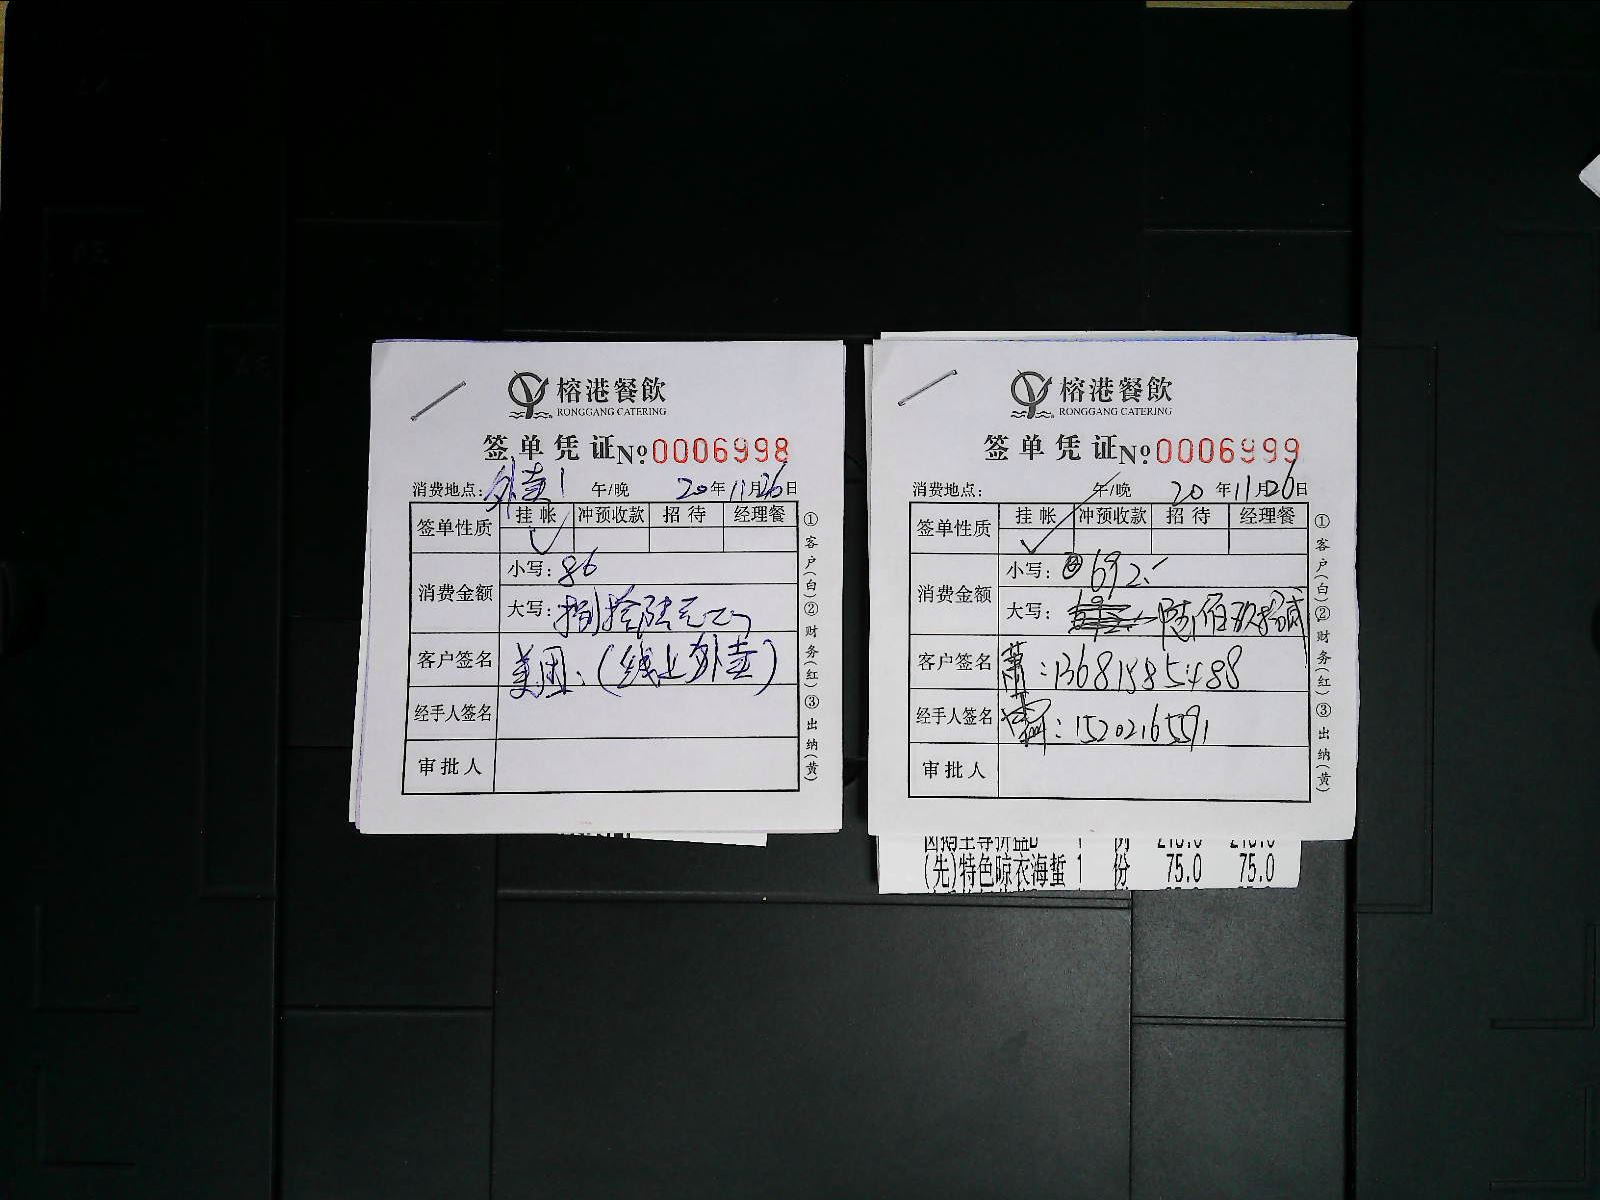 榕港餐飲
RONGGANG CATERING
签单凭证 No 0006998
消费地点：外卖1 午/晚 20年11月26日
签单性质 挂帐 冲预收款 招待 经理餐
消费金额 小写：86
大写：捌拾陆元正
客户签名 美团：（线上外卖）
经手人签名
审批人
①客户（白）②财务（红）③出纳（黄）
榕港餐飲
RONGGANG CATERING
签单凭证 No 0006999
消费地点： 午/晚 20年11月26日
签单性质 挂帐 冲预收款 招待 经理餐
消费金额 小写：692.-
大写：陆佰玖拾贰
客户签名 萧：13681585488
经手人签名 ：15202165591
审批人
①客户（白）②财务（红）③出纳（黄）
(先)特色晾衣海蜇 1 份 75.0 75.0